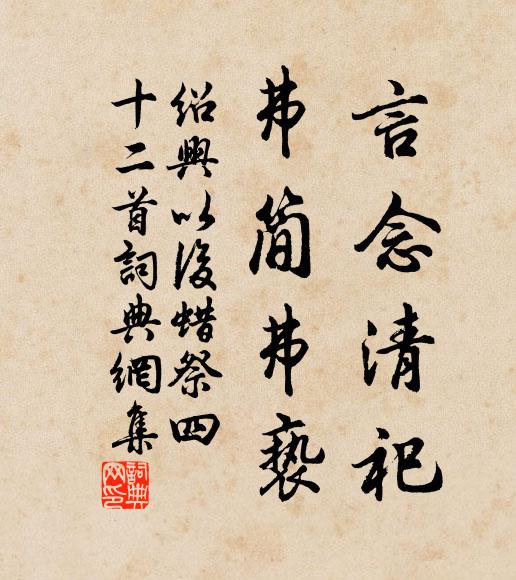 言念清祀
弗簡弗褻
紹興以後蜡祭四
十二首詞典網集
詞典
网印